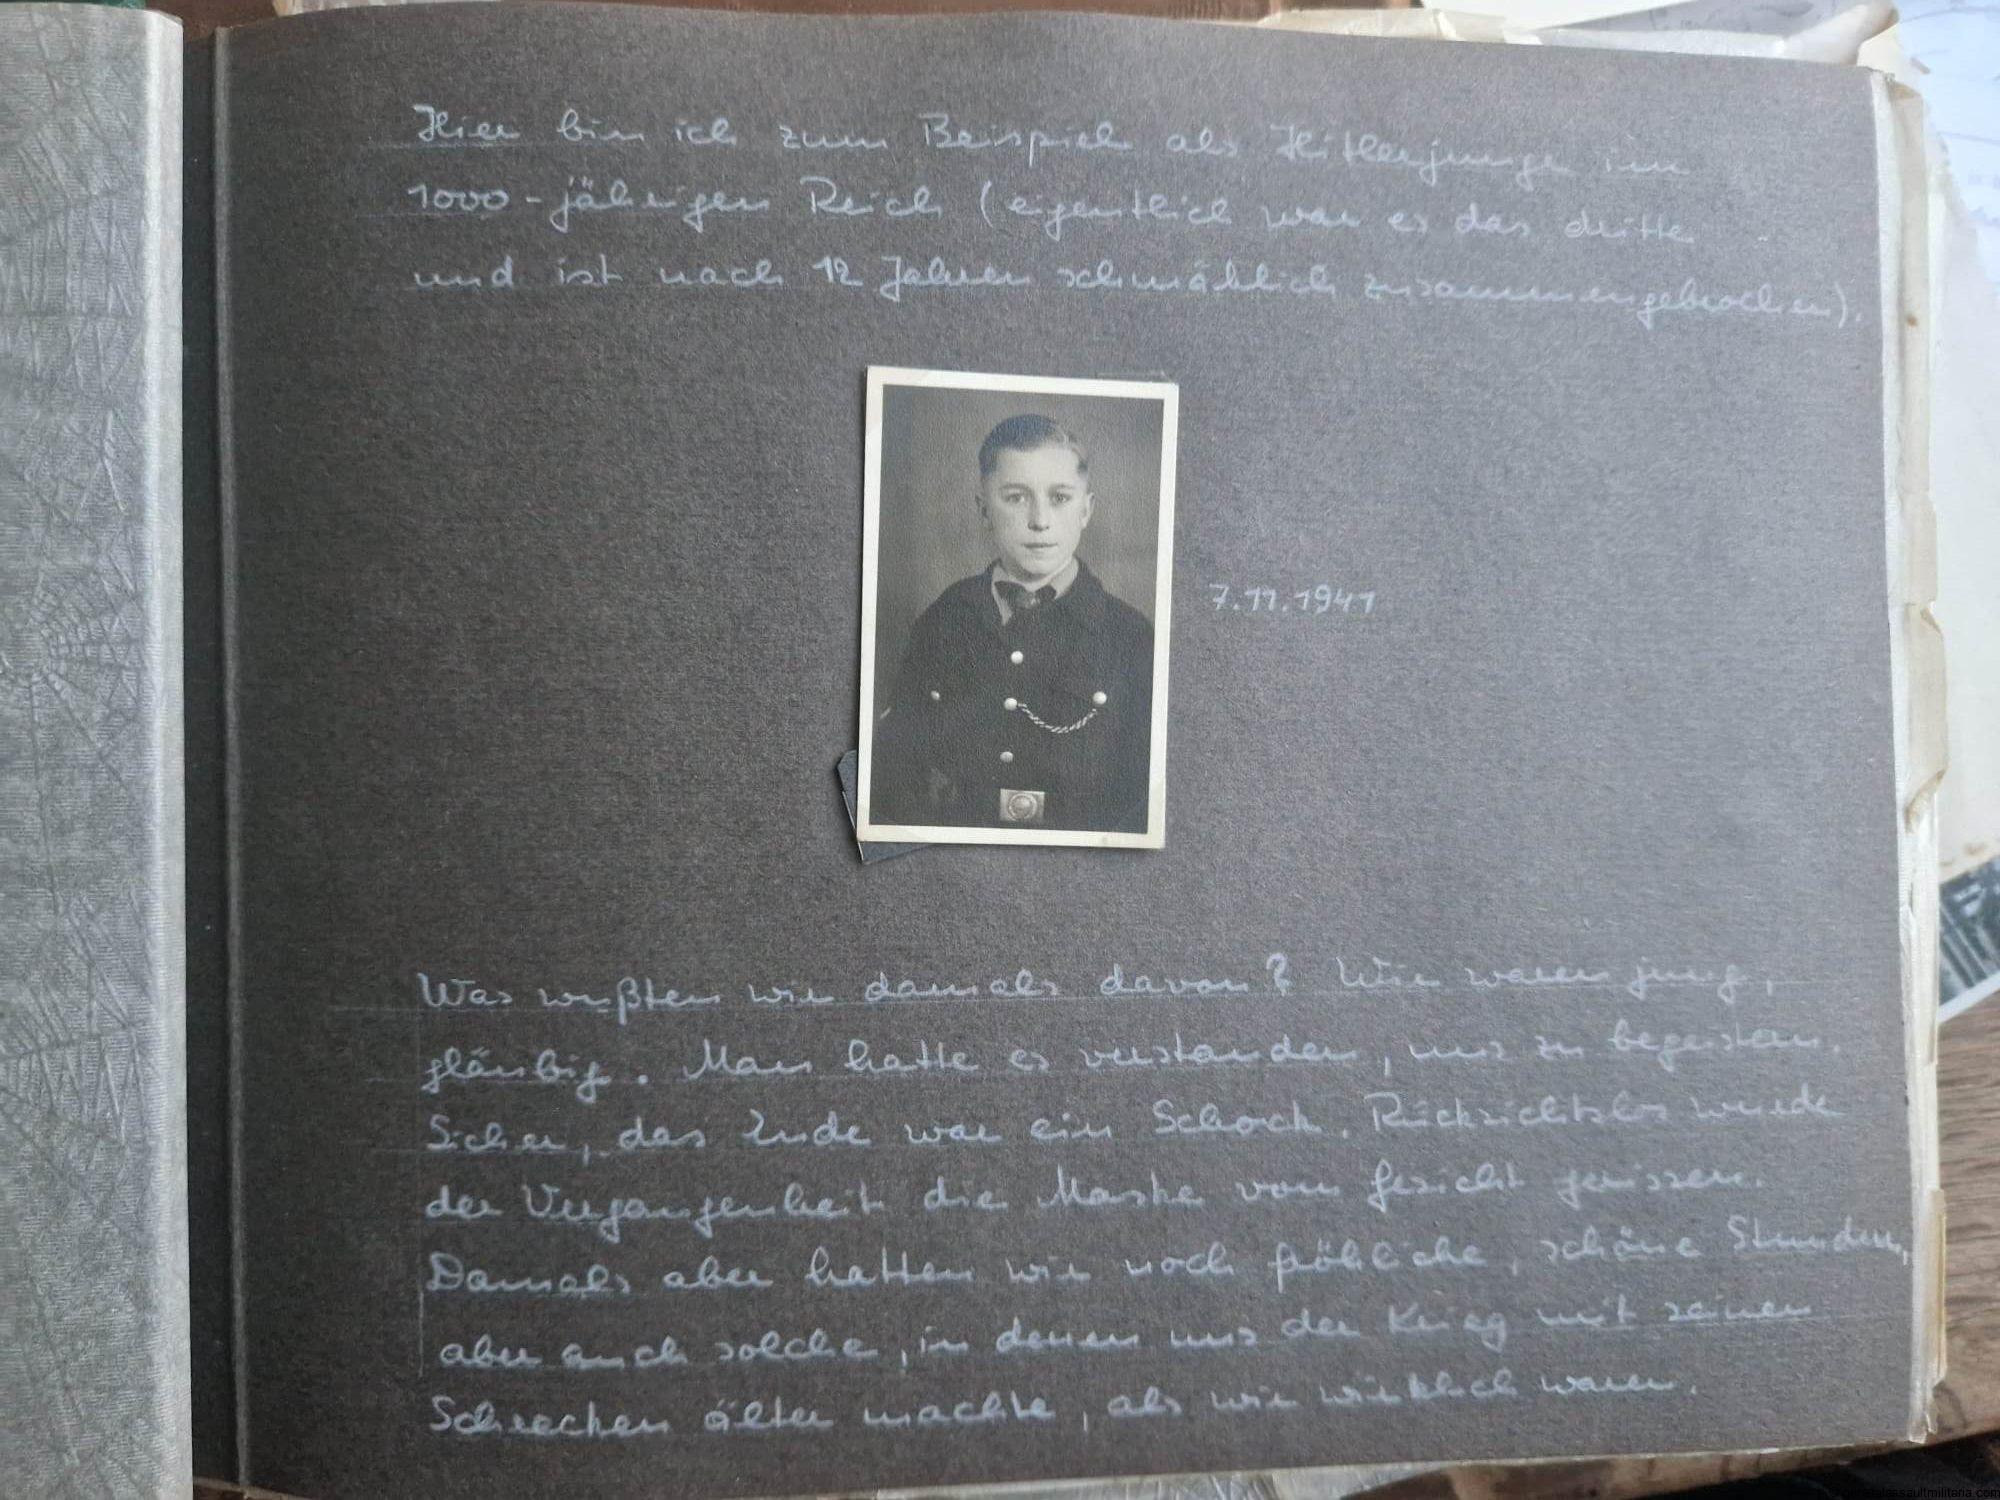 Hier bin ich zum Beispiel als Hitlerjunge im
1000-jährigen Reich (eigentlich war es das dritte
und ist nach 12 Jahren schmählich zusammengebrochen).
7.11.1941
Was wußten wir damals davon? Wir waren jung,
gläubig. Man hatte es verstanden, uns zu begeistern.
Sicher, das Ende war ein Schock. Rücksichtslos wurde
der Vergangenheit die Maske vom Gesicht gerissen.
Damals aber hatten wir noch fröhliche, schöne Stunden,
aber auch solche, in denen uns der Krieg mit seinen
Schrecken älter machte, als wir wirklich waren.